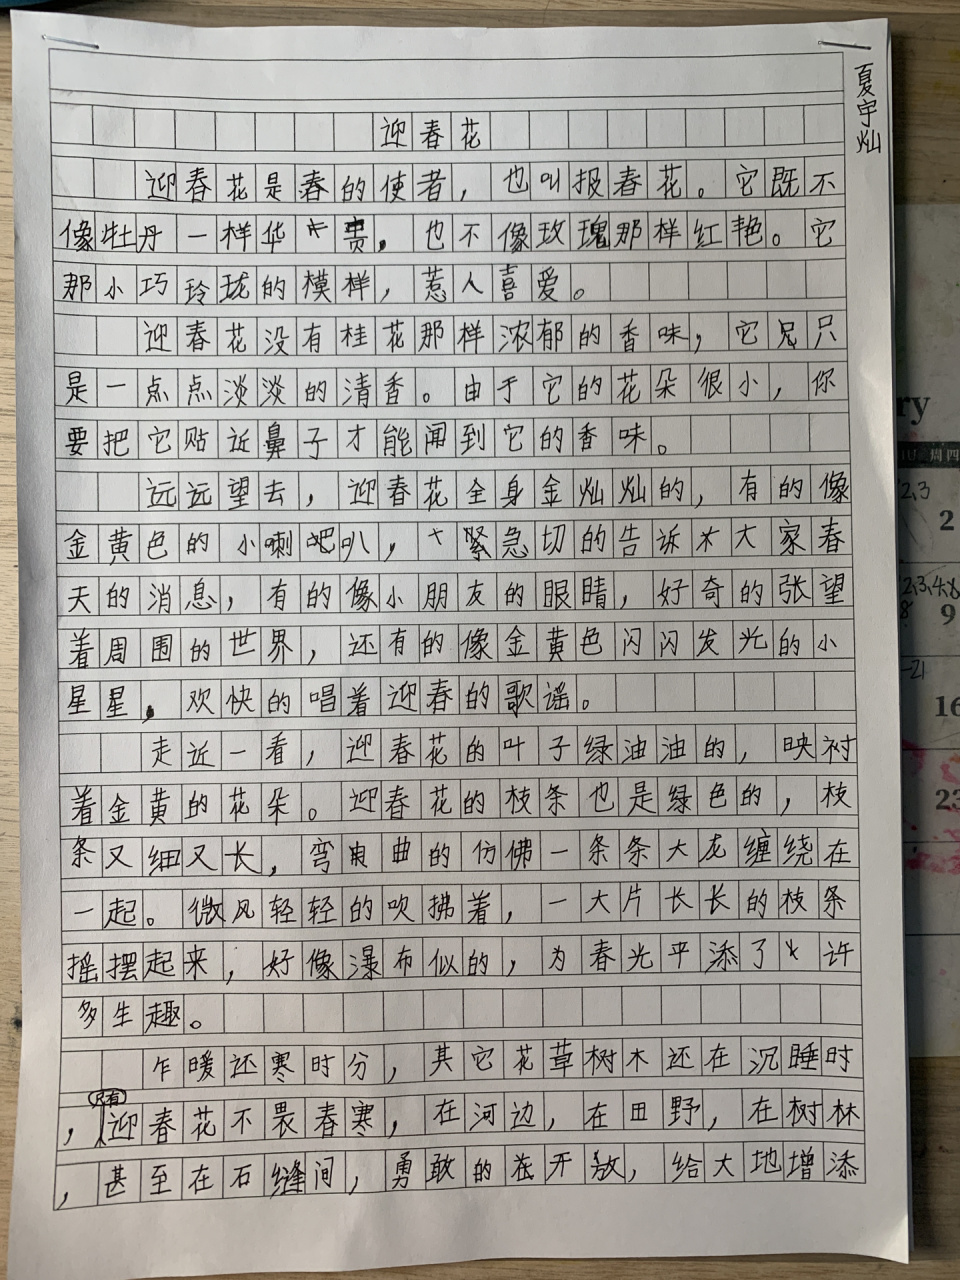 夏宇灿
迎春花
迎春花是春的使者，也叫报春花。它既不
像牡丹一样华贵，也不像玫瑰那样红艳。它
那小巧玲珑的模样，惹人喜爱。
迎春花没有桂花那样浓郁的香味，它只
是一点点淡淡的清香。由于它的花朵很小，你
要把它贴近鼻子才能闻到它的香味。
远远望去，迎春花全身金灿灿的，有的像
金黄色的小喇吧叭，紧急切的告诉大家春
天的消息，有的像小朋友的眼睛，好奇的张望
着周围的世界，还有的像金黄色闪闪发光的小
星星，欢快的唱着迎春的歌谣。
走近一看，迎春花的叶子绿油油的，映衬
着金黄的花朵。迎春花的枝条也是绿色的，枝
条又细又长，弯曲的仿佛一条条大龙缠绕在
一起。微风轻轻的吹拂着，一大片长长的枝条
摇摆起来，好像瀑布似的，为春光平添了许
多生趣。
乍暖还寒时分，其它花草树木还在沉睡时
，只有迎春花不畏春寒，在河边，在田野，在树林
，甚至在石缝间，勇敢的在开放，给大地增添
ry
周四
2
9
16
23